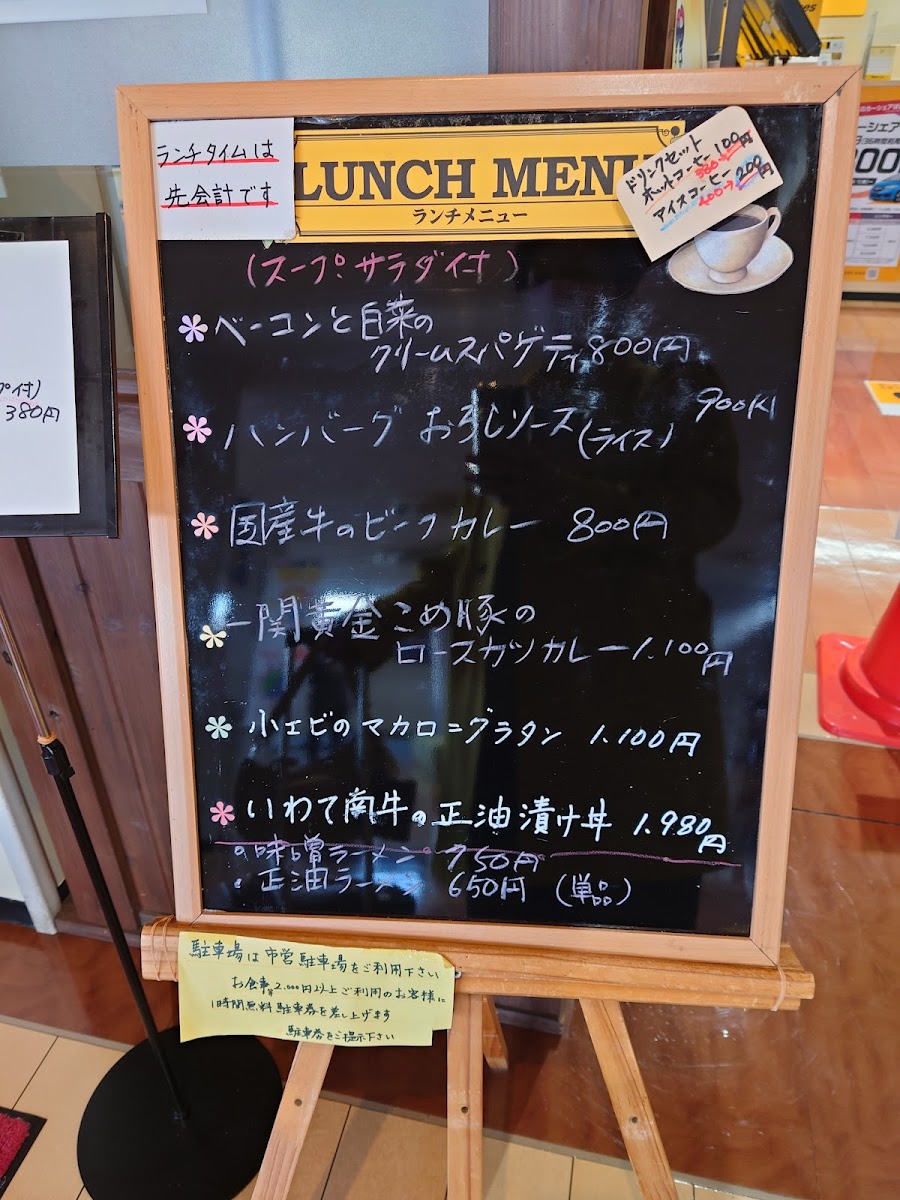 ランチタイムは
先会計です
LUNCH MENU
ランチメニュー
ドリンクセット
ホットコーヒー 380→100円
アイスコーヒー 400→200円
(スープ・サラダ付)
ベーコンと白菜の
クリームスパゲティ 800円
ハンバーグ おろしソース(ライス) 900円
国産牛のビーフカレー 800円
一関黄金こめ豚の
ロースカツカレー 1.100円
小エビのマカロニグラタン 1.100円
いわて南牛の正油漬け丼 1.980円
味噌ラーメン 750円
正油ラーメン 650円 (単品)
駐車場は市営駐車場をご利用下さい
お食事 2.000円以上ご利用のお客様に
1時間無料駐車券を差し上げます
駐車券をご提示下さい
380円